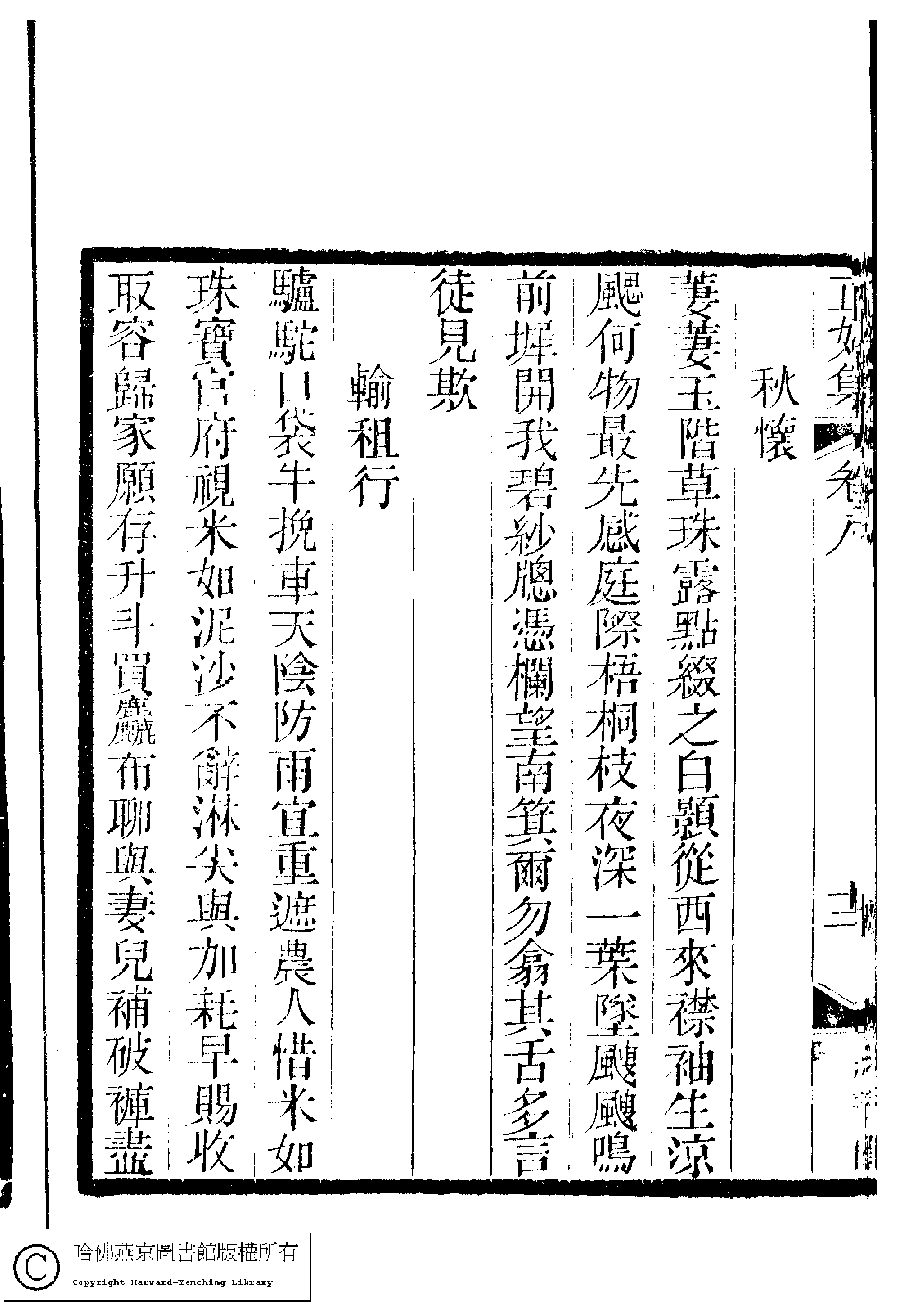 正始集 卷八 三
秋懷
萋萋玉階草珠露點綴之白顥從西來襟袖生涼
颸何物最先感庭際梧桐枝夜深一葉墜颼颼鳴
前墀開我碧紗牕憑欄望南箕爾勿翕其舌多言
徒見欺
輸租行
驢駝口袋牛挽車天陰防雨宜重遮農人惜米如
珠寶官府視米如泥沙不辭淋尖與加耗早賜收
取容歸家願存升斗買麤布聊與妻兒補破褲盡
哈佛燕京圖書館版權所有
Copyright Harvard-Yenching Library